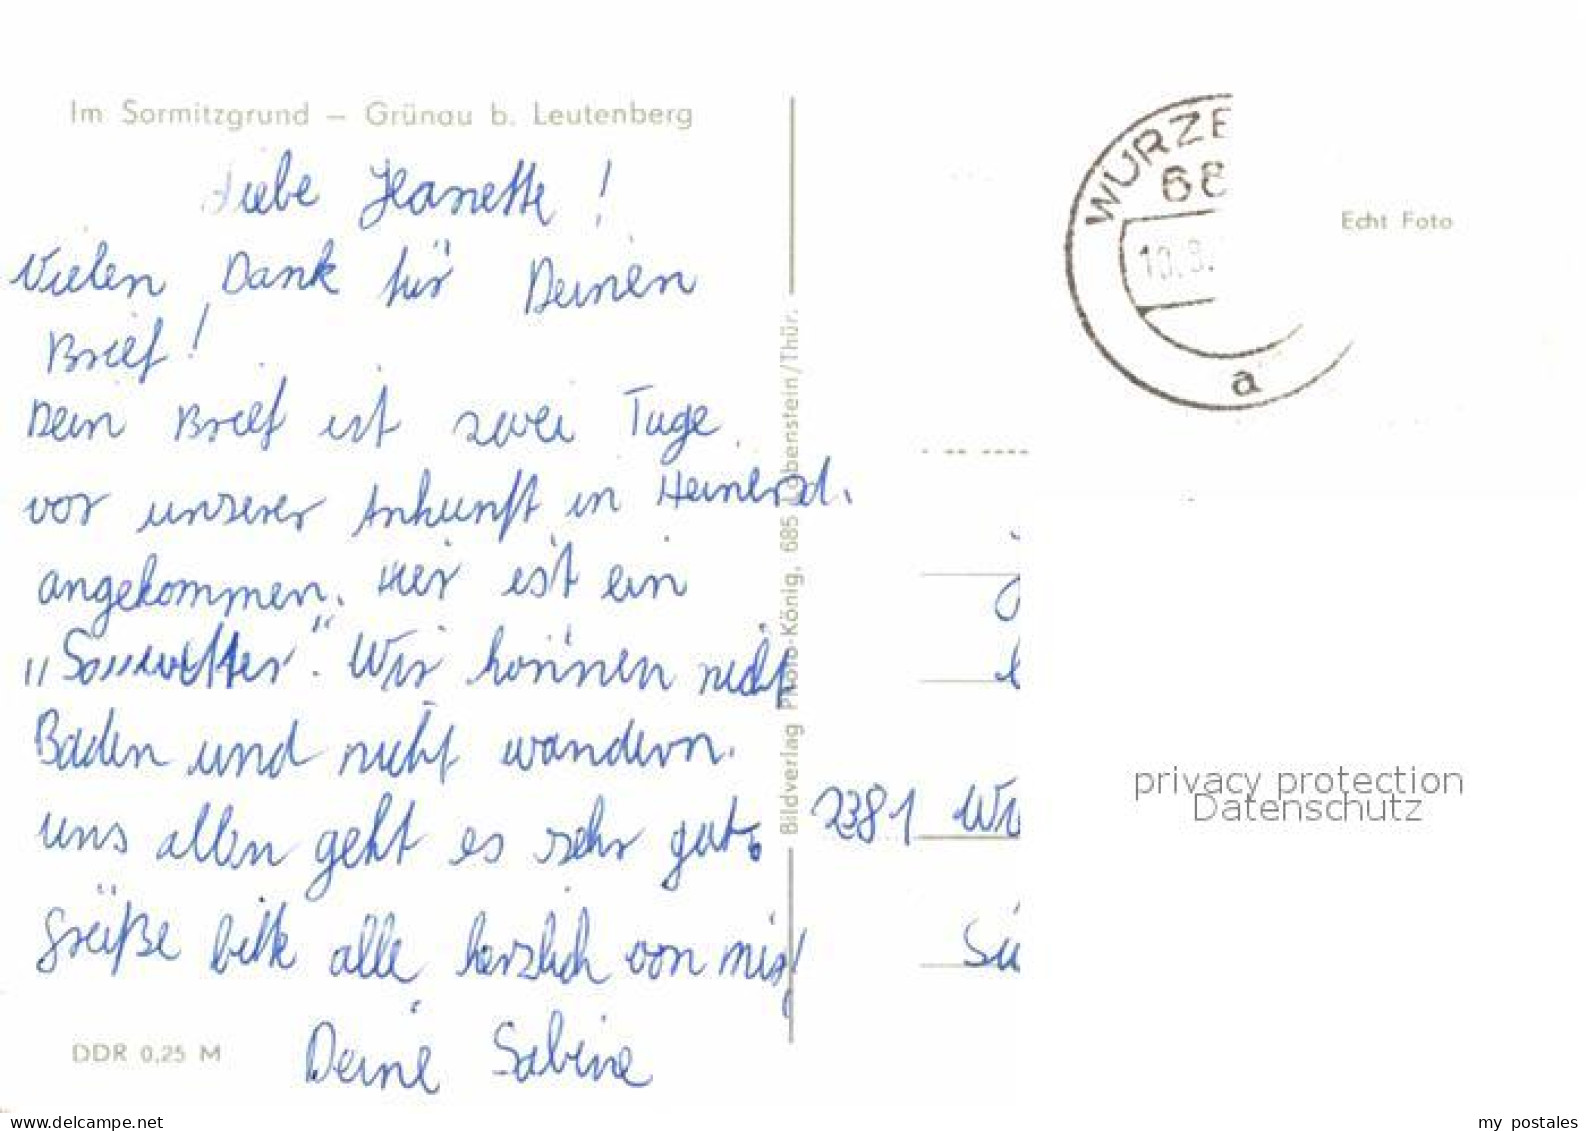 Im Sormitzgrund – Grünau b. Leutenberg
Liebe Jeanette !
Vielen Dank für Deinen
Brief!
Dein Brief ist zwei Tage
vor unserer Ankunft in Heinersd.
angekommen. Hier ist ein
„Sauwetter". Wir können nicht
Baden und nicht wandern.
Uns allen geht es sehr gut.
Grüße bitte alle herzlich von mir!
Deine Sabine
DDR 0,25 M
Bildverlag Photo-König, 685 Lobenstein/Thür.
WURZB
68
10.8.
a
Echt Foto
2381 Wi
Sü
privacy protection
Datenschutz
www.delcampe.net
my_postales